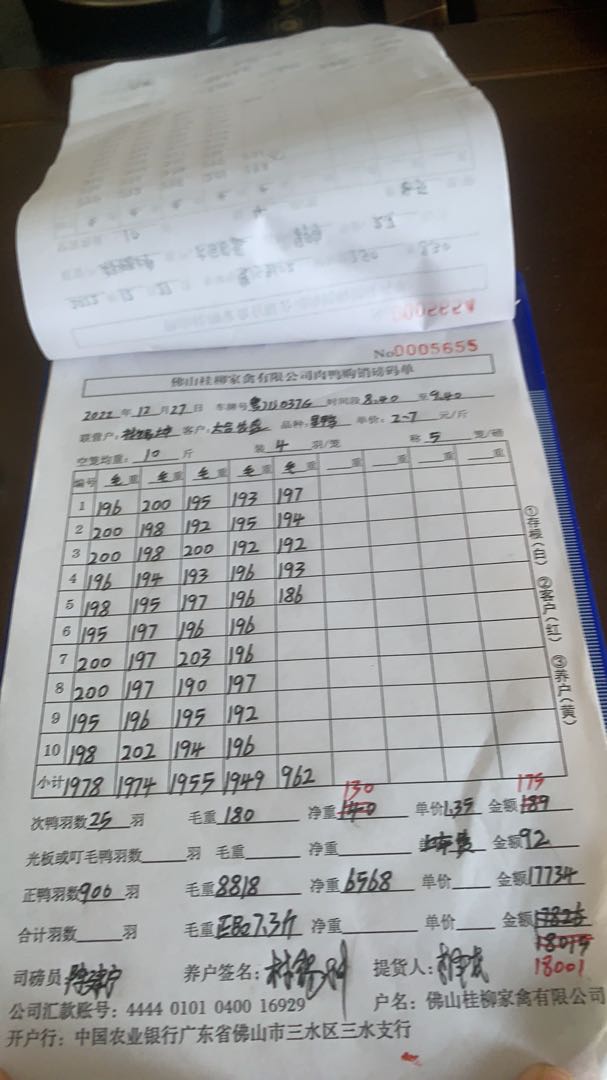 No0005655
佛山桂柳家禽有限公司肉鸭购销磅码单
2022年12月27日 车牌号 时间段8:40至9:40
联营户: 客户: 品种: 单价:2-7元/斤
空笼均重:10斤 装4羽/笼 称5笼/磅
编号 毛重 毛重 毛重 毛重 毛重 重 重 重 重
1 196 200 195 193 197
2 200 198 192 195 194
3 200 198 200 192 192
4 196 194 193 196 193
5 198 195 197 196 186
6 195 197 196 196
7 200 197 203 196
8 200 197 190 197
9 195 196 195 192
10 198 202 194 196
小计 1978 1974 1955 1949 962
130 175
次鸭羽数25羽 毛重180 净重140 单价1.35 金额189
光板或叮毛鸭羽数 羽 毛重 净重 金额92
正鸭羽数900羽 毛重8818 净重6568 单价 金额17734
合计羽数 羽 毛重正品7.3斤 净重 单价 金额17826
18015
18001
司磅员 养户签名: 提货人:
公司汇款账号:4444 0101 0400 16929 户名:佛山桂柳家禽有限公司
开户行:中国农业银行广东省佛山市三水区三水支行
①存根(白) ②客户(红) ③养户(黄)